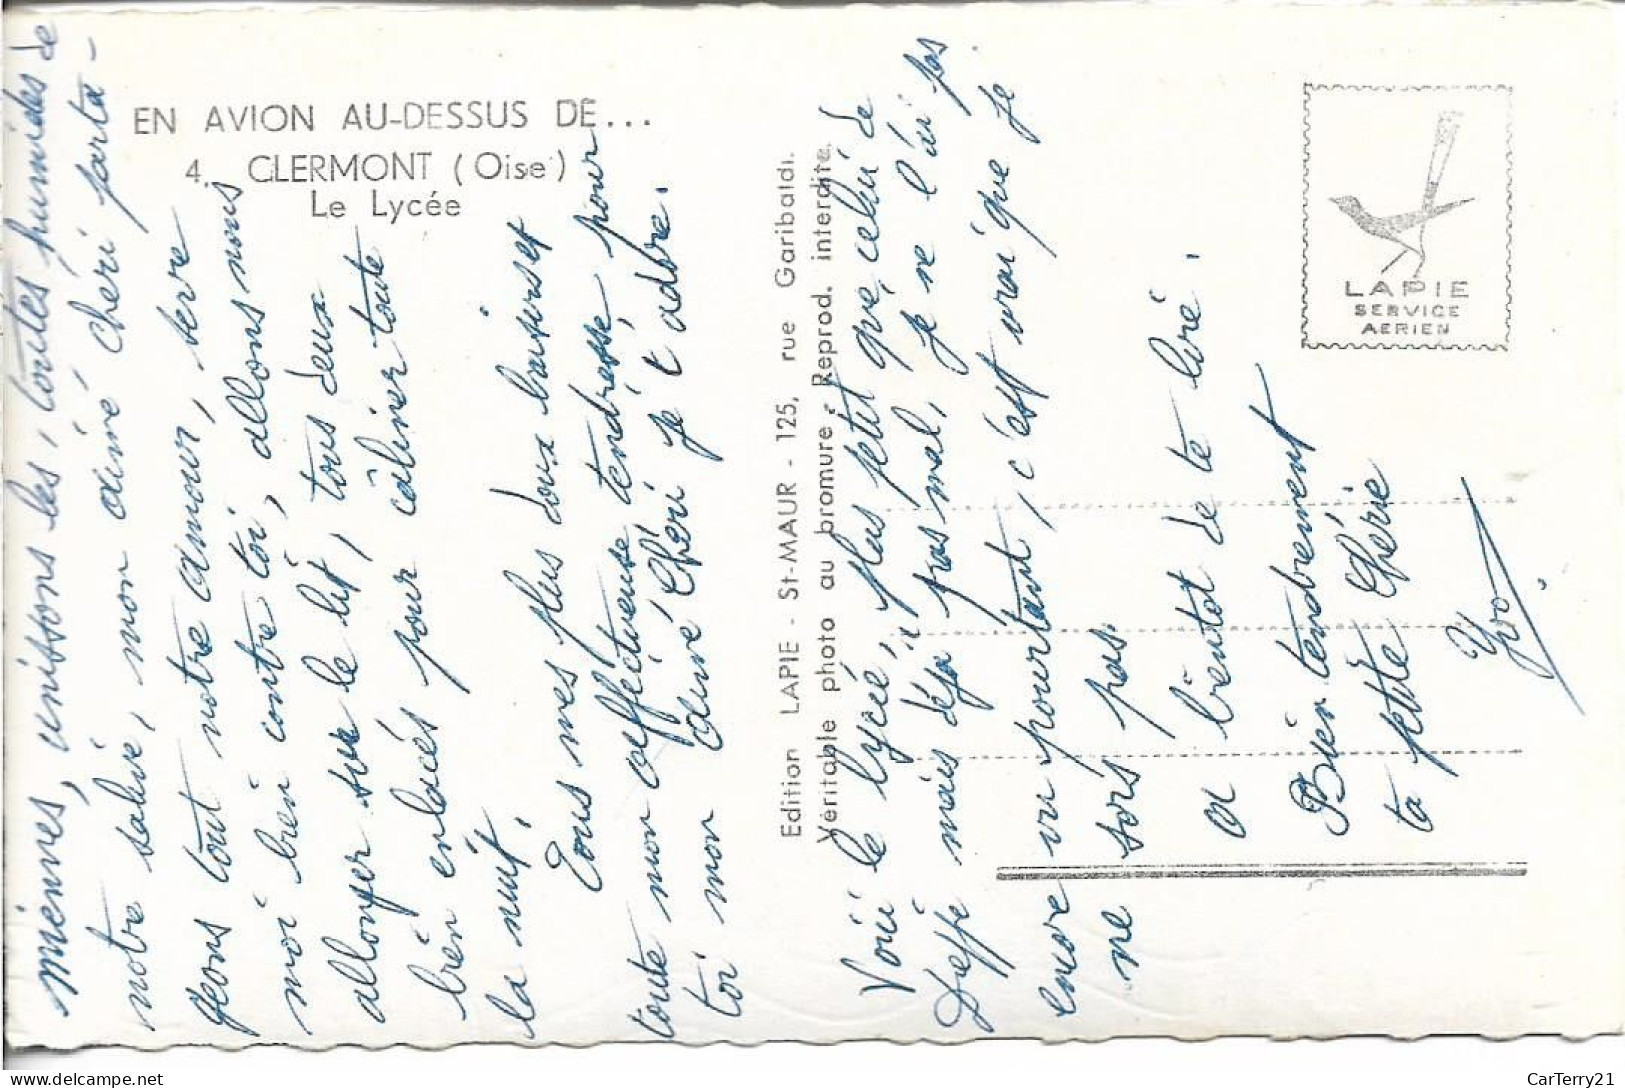 EN AVION AU-DESSUS DE...
4. CLERMONT (Oise)
Le Lycée
miennes, unissons les, toutes humides de
notre salive, mon aimé chéri parta-
geons tout notre amour, serre
moi bien contre toi, allons nous
allonger sur le lit, tous deux
bien enlacés pour câliner toute
la nuit.
Tous mes plus doux baisers et
toute mon affectueuse tendresse, pour
toi mon aimé Chéri je t'adore.
Edition LAPIE - St-MAUR - 125, rue Garibaldi.
Véritable photo au bromure - Reprod. interdite.
Voici le lycée, plus petit que celui de
Dieppe mais déjà pas mal, je ne l'ai pas
encore vu pourtant, c'est vrai que je
ne sors pas.
A bientot de te lire.
Bien tendrement
ta petite Chérie
Yvo.
LAPIE
SERVICE
AERIEN
CarTerry21